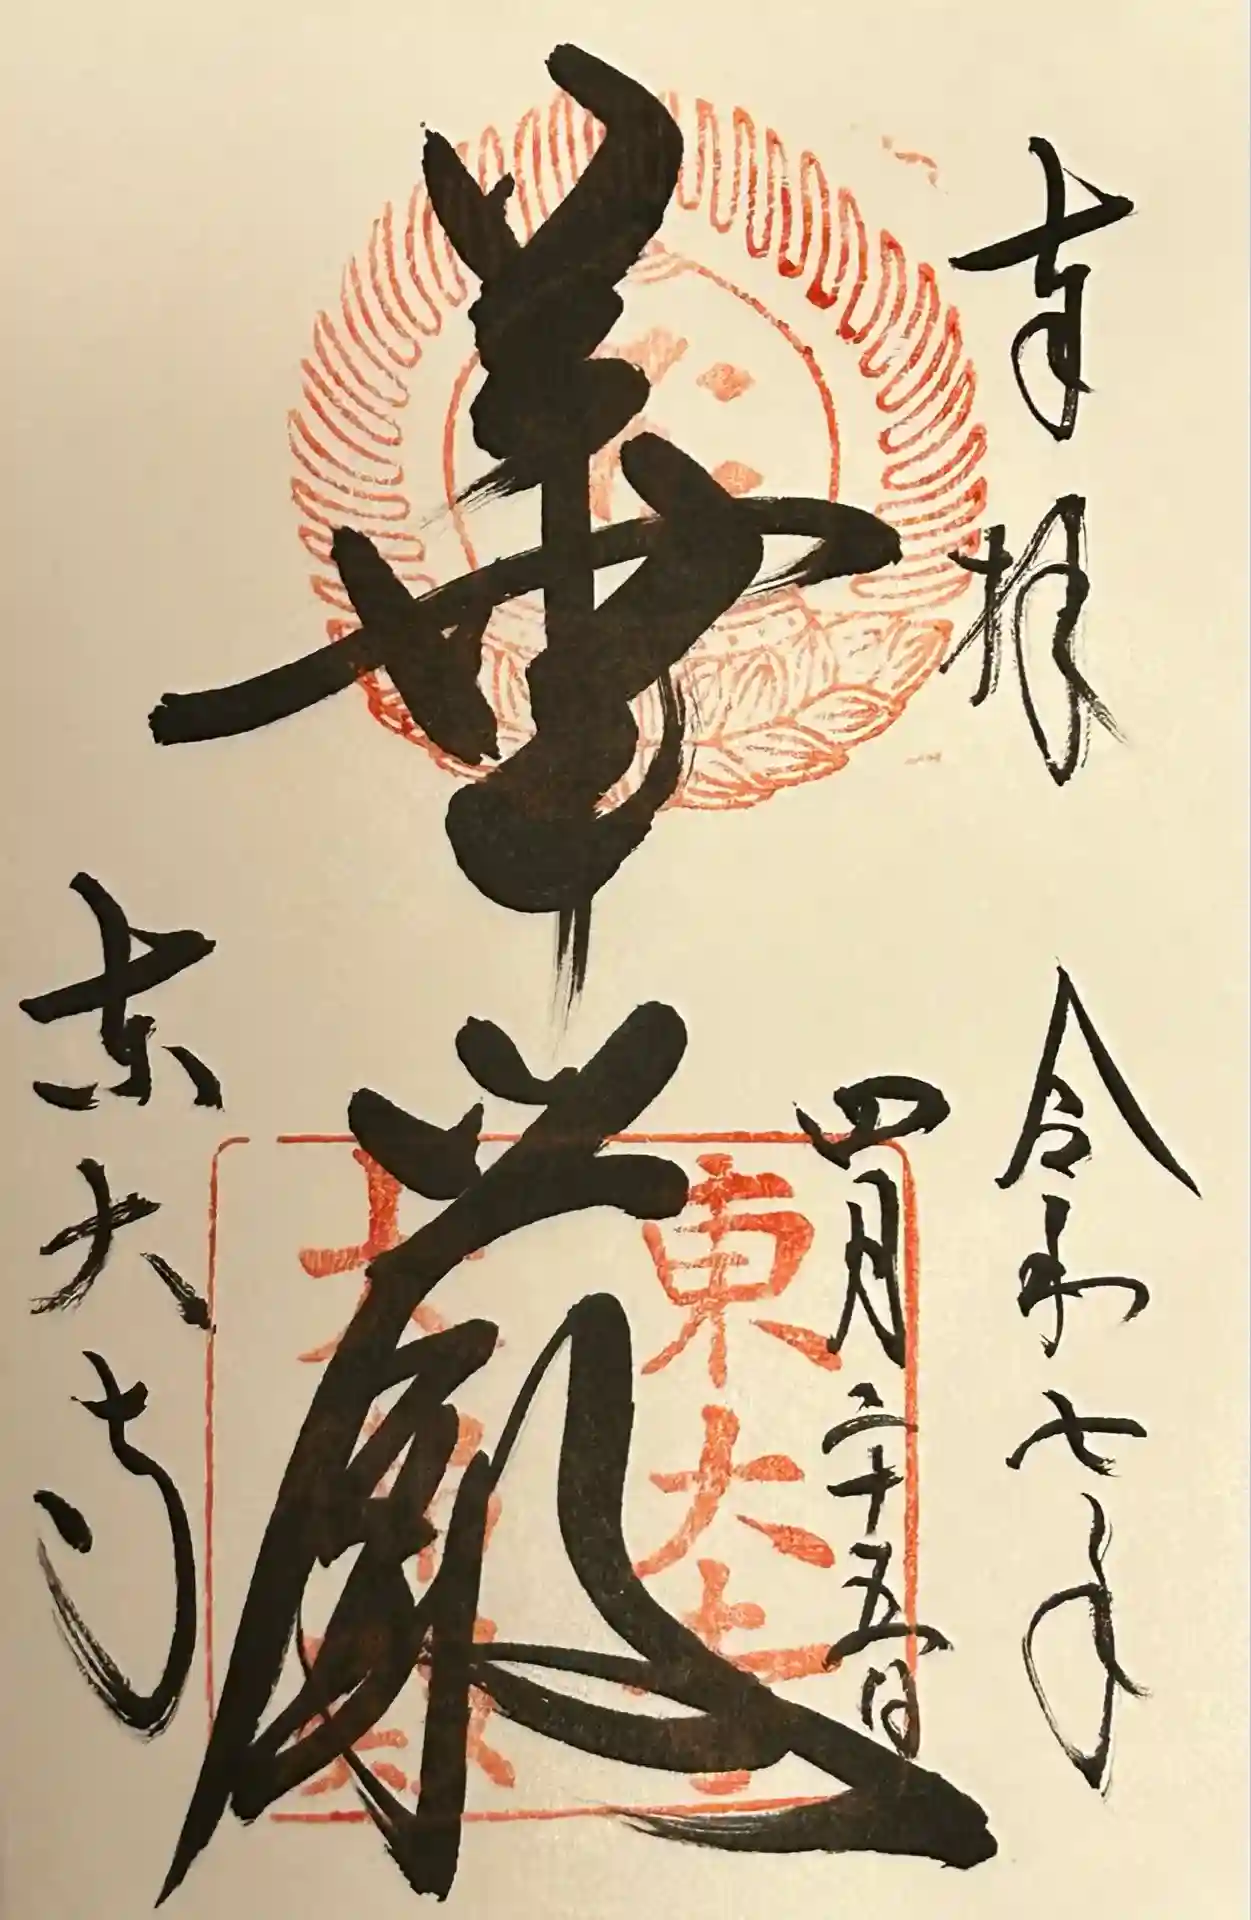 奉拝
令和七年
四月二十五日
華厳
東大寺
東大寺